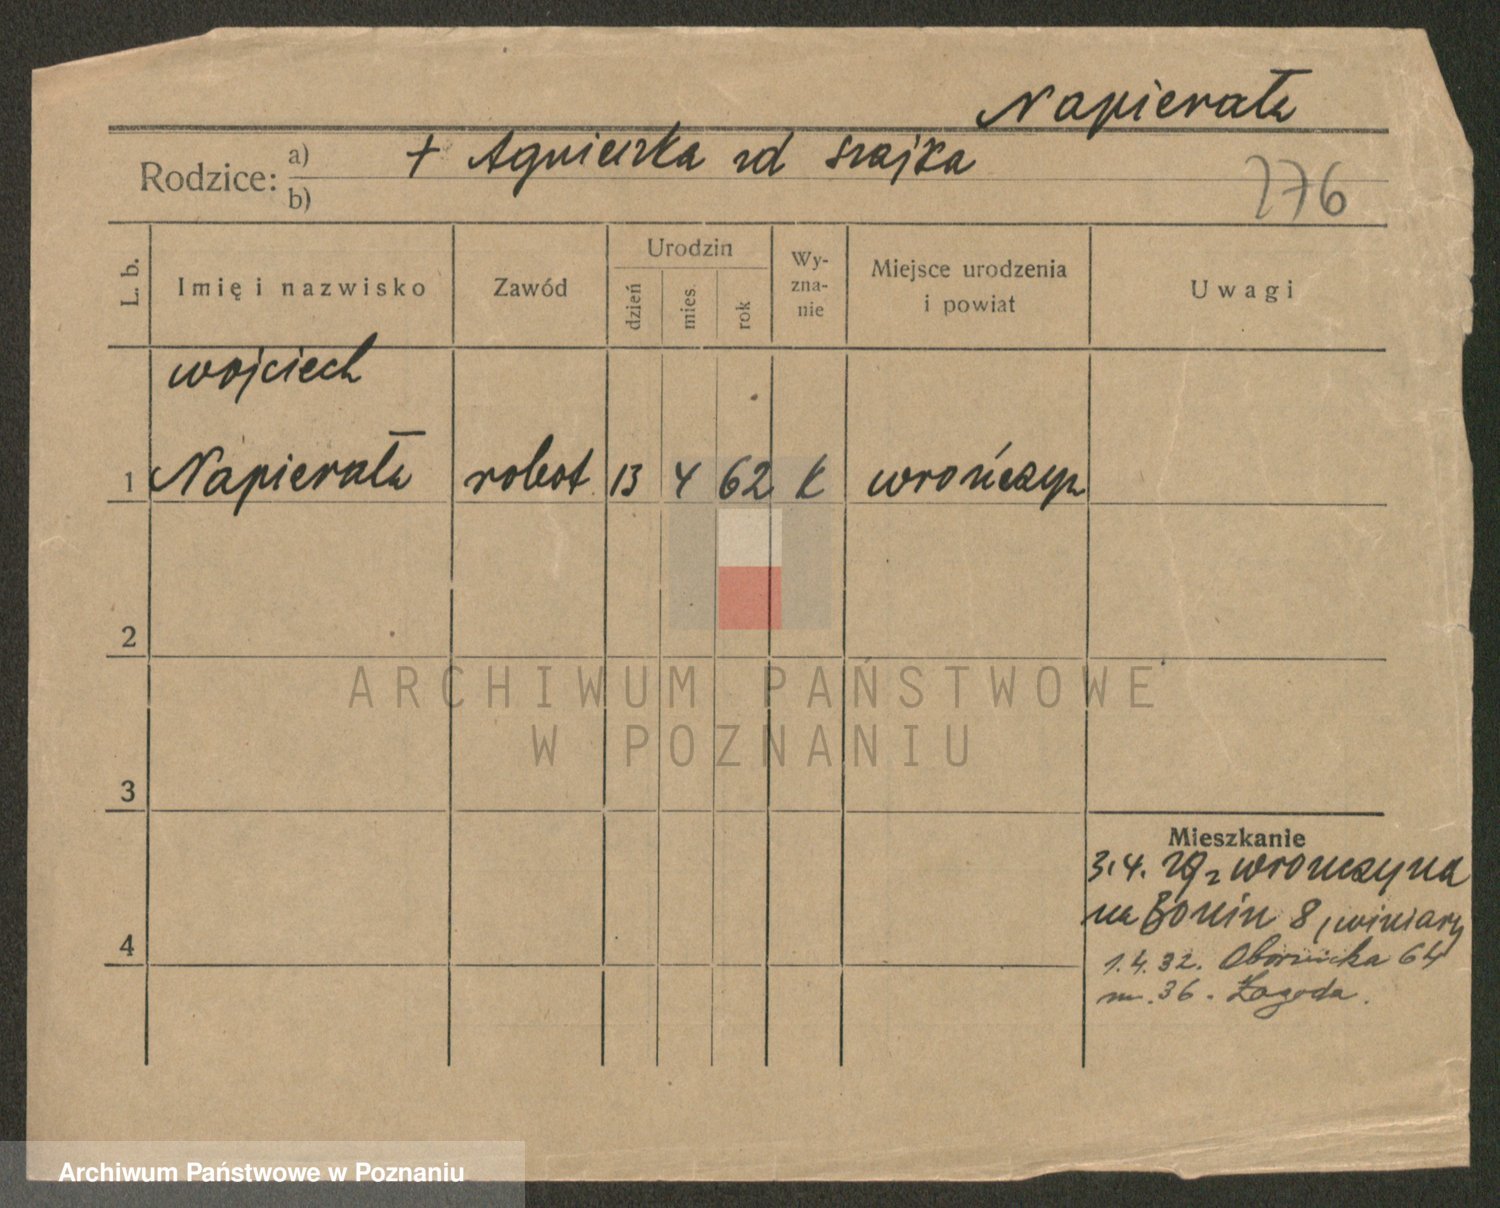 Napierała
Rodzice: a) + Agnieszka zd Szajka
b)
276
L. b.
Imię i nazwisko
Zawód
Urodzin
dzień
mies.
rok
Wy-
zna-
nie
Miejsce urodzenia
i powiat
Uwagi
wojciech
1 Napierała robot. 13 4 62 k wrończyn
2
3
4
Mieszkanie
3.4. 29 z wronczyna
na Bonin 8, winiary
1.4.32. Obornicka 64
m. 36. Łagoda.
ARCHIWUM PAŃSTWOWE
W POZNANIU
Archiwum Państwowe w Poznaniu